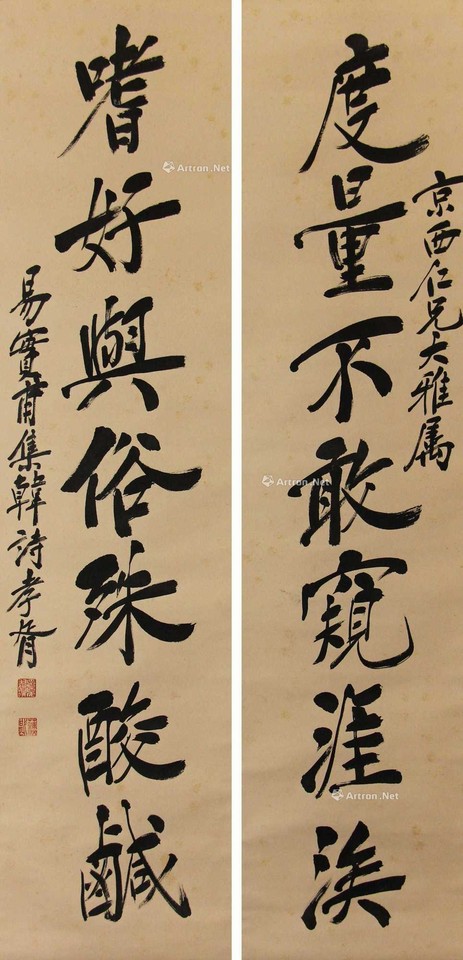 京西仁兄大雅属
度量不敢窥涯涘
嗜好與俗殊酸鹹
易實甫集韓詩孝胥
Artron.Net
Artron.Net
Artron.Net